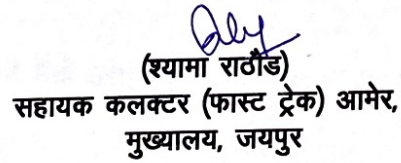 (श्यामा राठौड)
सहायक कलक्टर (फास्ट ट्रेक) आमेर,
मुख्यालय, जयपुर